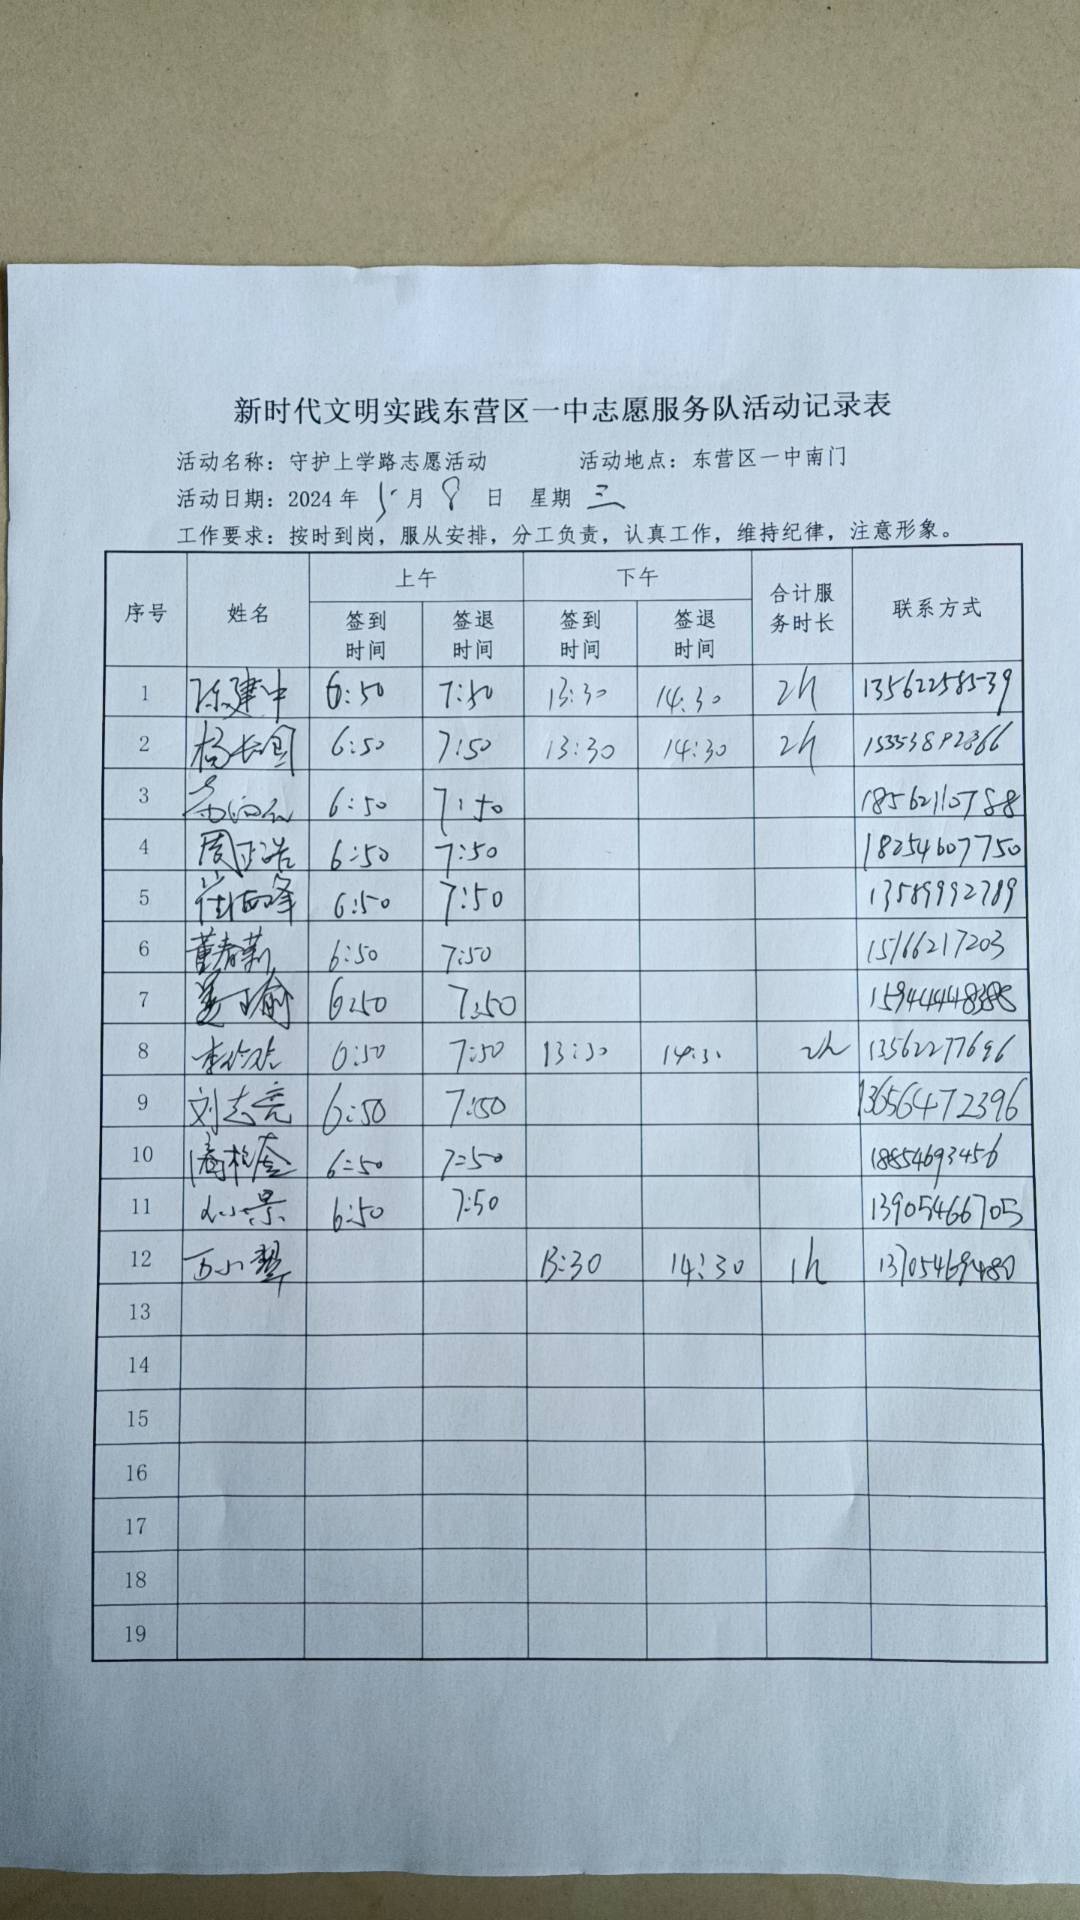 新时代文明实践东营区一中志愿服务队活动记录表
活动名称：守护上学路志愿活动 活动地点：东营区一中南门
活动日期：2024年 5月 8 日 星期 三
工作要求：按时到岗，服从安排，分工负责，认真工作，维持纪律，注意形象。
序号 姓名 上午 下午 合计服务时长 联系方式
签到时间 签退时间 签到时间 签退时间
1 陈建中 6:50 7:50 13:30 14:30 2h 13562258539
2 杨长国 6:50 7:50 13:30 14:30 2h 15353892366
3 6:50 7:50 18562110788
4 周正浩 6:50 7:50 18254607750
5 崔西峰 6:50 7:50 13589992789
6 董春莉 6:50 7:50 15166217203
7 姜瑜 6:50 7:50
8 6:50 7:50 13:30 14:30 2h 13562277696
9 刘志亮 6:50 7:50 13656472396
10 6:50 7:50 18854693456
11 6:50 7:50 13905466705
12 13:30 14:30 1h 13705469480
13
14
15
16
17
18
19